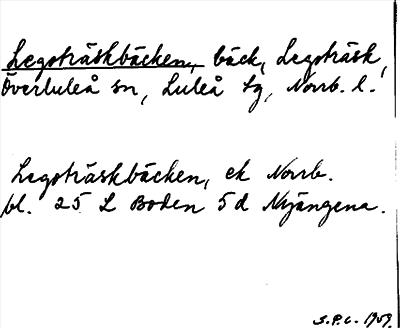 Legoträskbäcken, bäck, Legoträsk,
Överluleå sn, Luleå tg, Norrb. l.
Legoträskbäcken, ek Norrb.
bl. 25 L Boden 5d Mjängena.
S.P.C. 1959.